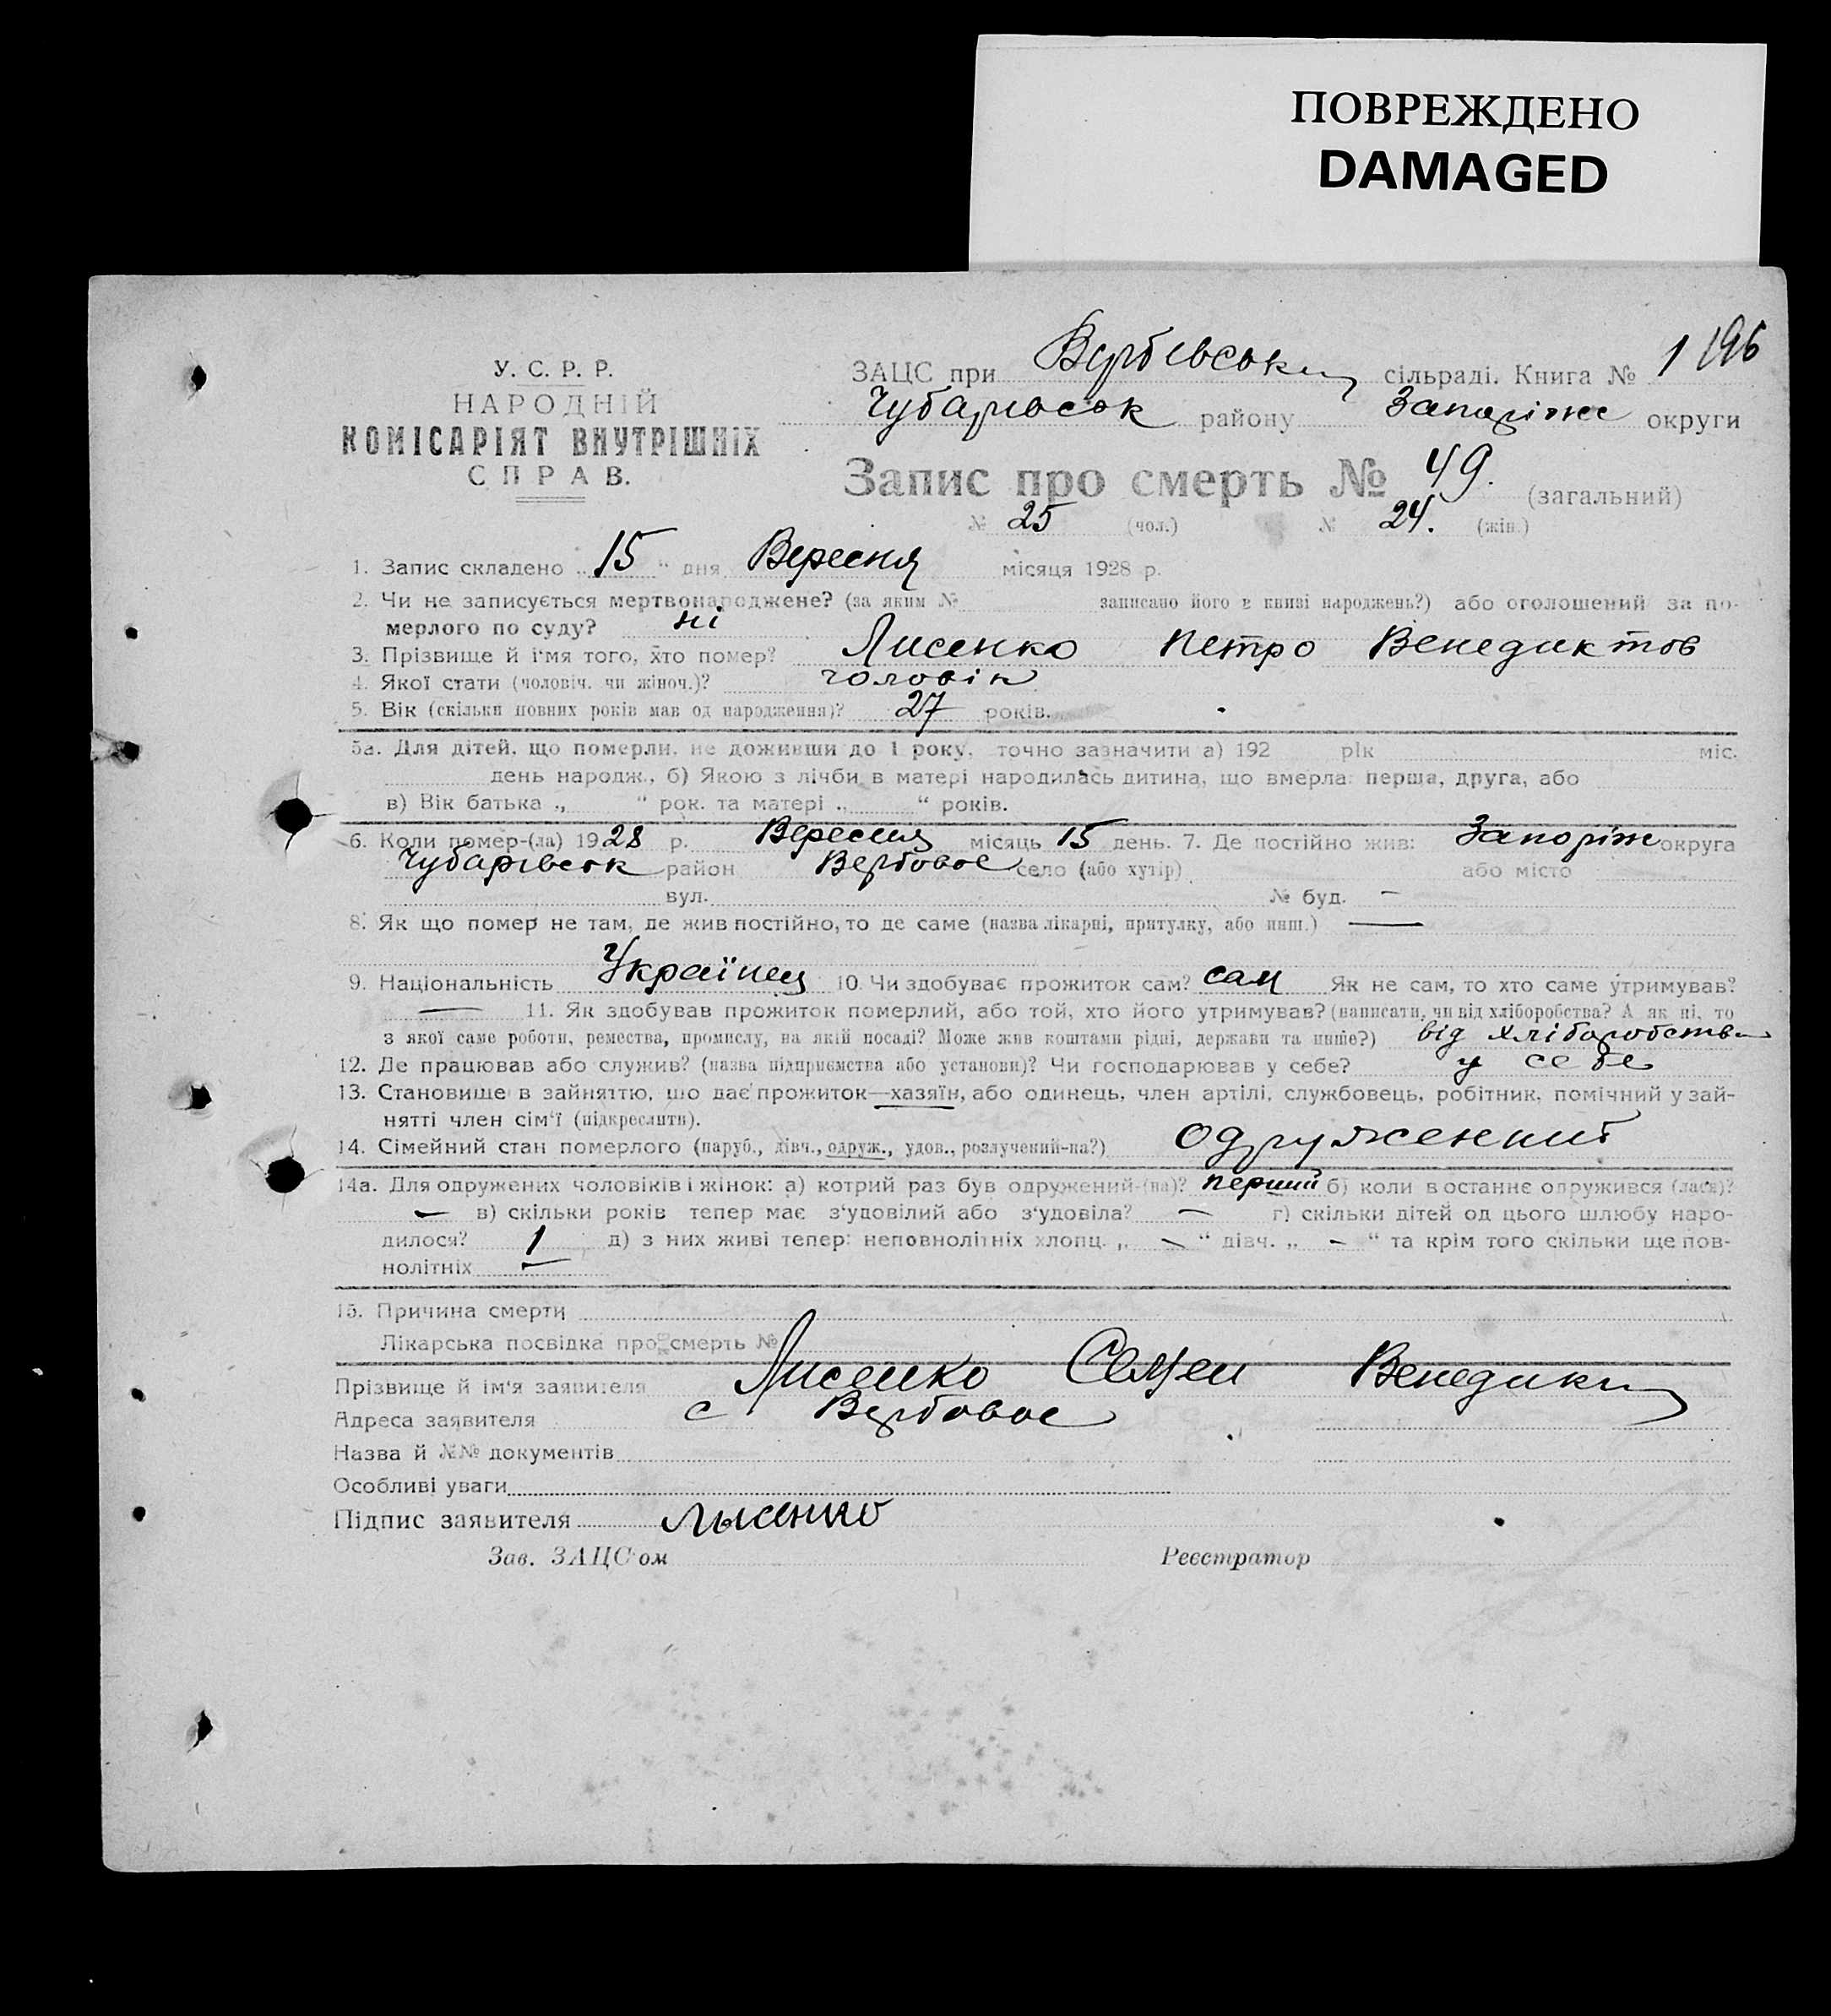 ПОВРЕЖДЕНО
DAMAGED
У. С. Р. Р.
НАРОДНІЙ
КОМІСАРІЯТ ВНУТРІШНІХ
СПРАВ.
ЗАЦС при Вербівськ сільраді. Книга № 1 196
Чубарівськ району Запоріжс округи
Запис про смерть № 49. (загальний)
№ 25 (чол.) № 24. (жін.)
1. Запис складено „15“ дня Вересня місяця 1928 р.
2. Чи не записується мертвонароджене? (за яким № записано його в книзі народжень?) або оголошений за по-
мерлого по суду? ні
3. Прізвище й ім'я того, хто помер? Лисенко Петро Венедиктов
4. Якої стати (чоловіч. чи жіноч.)? чоловік
5. Вік (скільки повних років мав од народження)? 27 років.
5а. Для дітей, що померли, не доживши до 1 року, точно зазначити а) 192 рік міс.
день народж., б) Якою з лічби в матері народилась дитина, що вмерла: перша, друга, або
в) Вік батька „ “ рок. та матері „ “ років.
6. Коли помер-(ла) 1928 р. Вересня місяць 15 день. 7. Де постійно жив: Запоріж округа
Чубарівськ район Вербовое село (або хутір) або місто
вул. № буд. —
8. Як що помер не там, де жив постійно, то де саме (назва лікарні, притулку, або инш.) —
9. Національність Українец 10. Чи здобуває прожиток сам? сам Як не сам, то хто саме утримував?
— 11. Як здобував прожиток померлий, або той, хто його утримував? (написати, чи від хліборобства? А як ні, то
з якої саме роботи, ремества, промислу, на якій посаді? Може жив коштами рідні, держави та инше?) від хліборобства
12. Де працював або служив? (назва підприємства або установи)? Чи господарював у себе? у себе
13. Становище в зайняттю, що дає прожиток—хазяїн, або одинець, член артілі, службовець, робітник, помічний у зай-
нятті член сім'ї (підкреслити).
14. Сімейний стан померлого (паруб., дівч., одруж., удов., розлучений-на?) одружений
14а. Для одружених чоловіків і жінок: а) котрий раз був одружений-(на)? перший б) коли востаннє одружився (лася)?
— в) скільки років тепер має з'удовілий або з'удовіла? — г) скільки дітей од цього шлюбу наро-
дилося? 1 д) з них живі тепер: неповнолітніх хлопц. „ — “ дівч. „ — “ та крім того скільки ще пов-
нолітніх —
15. Причина смерти
Лікарська посвідка про смерть №
Прізвище й ім'я заявителя Лисенко Семен Венедикт
Адреса заявителя с Вербовое
Назва й №№ документів
Особливі уваги
Підпис заявителя Лысенко
Зав. ЗАЦС'ом Реєстратор